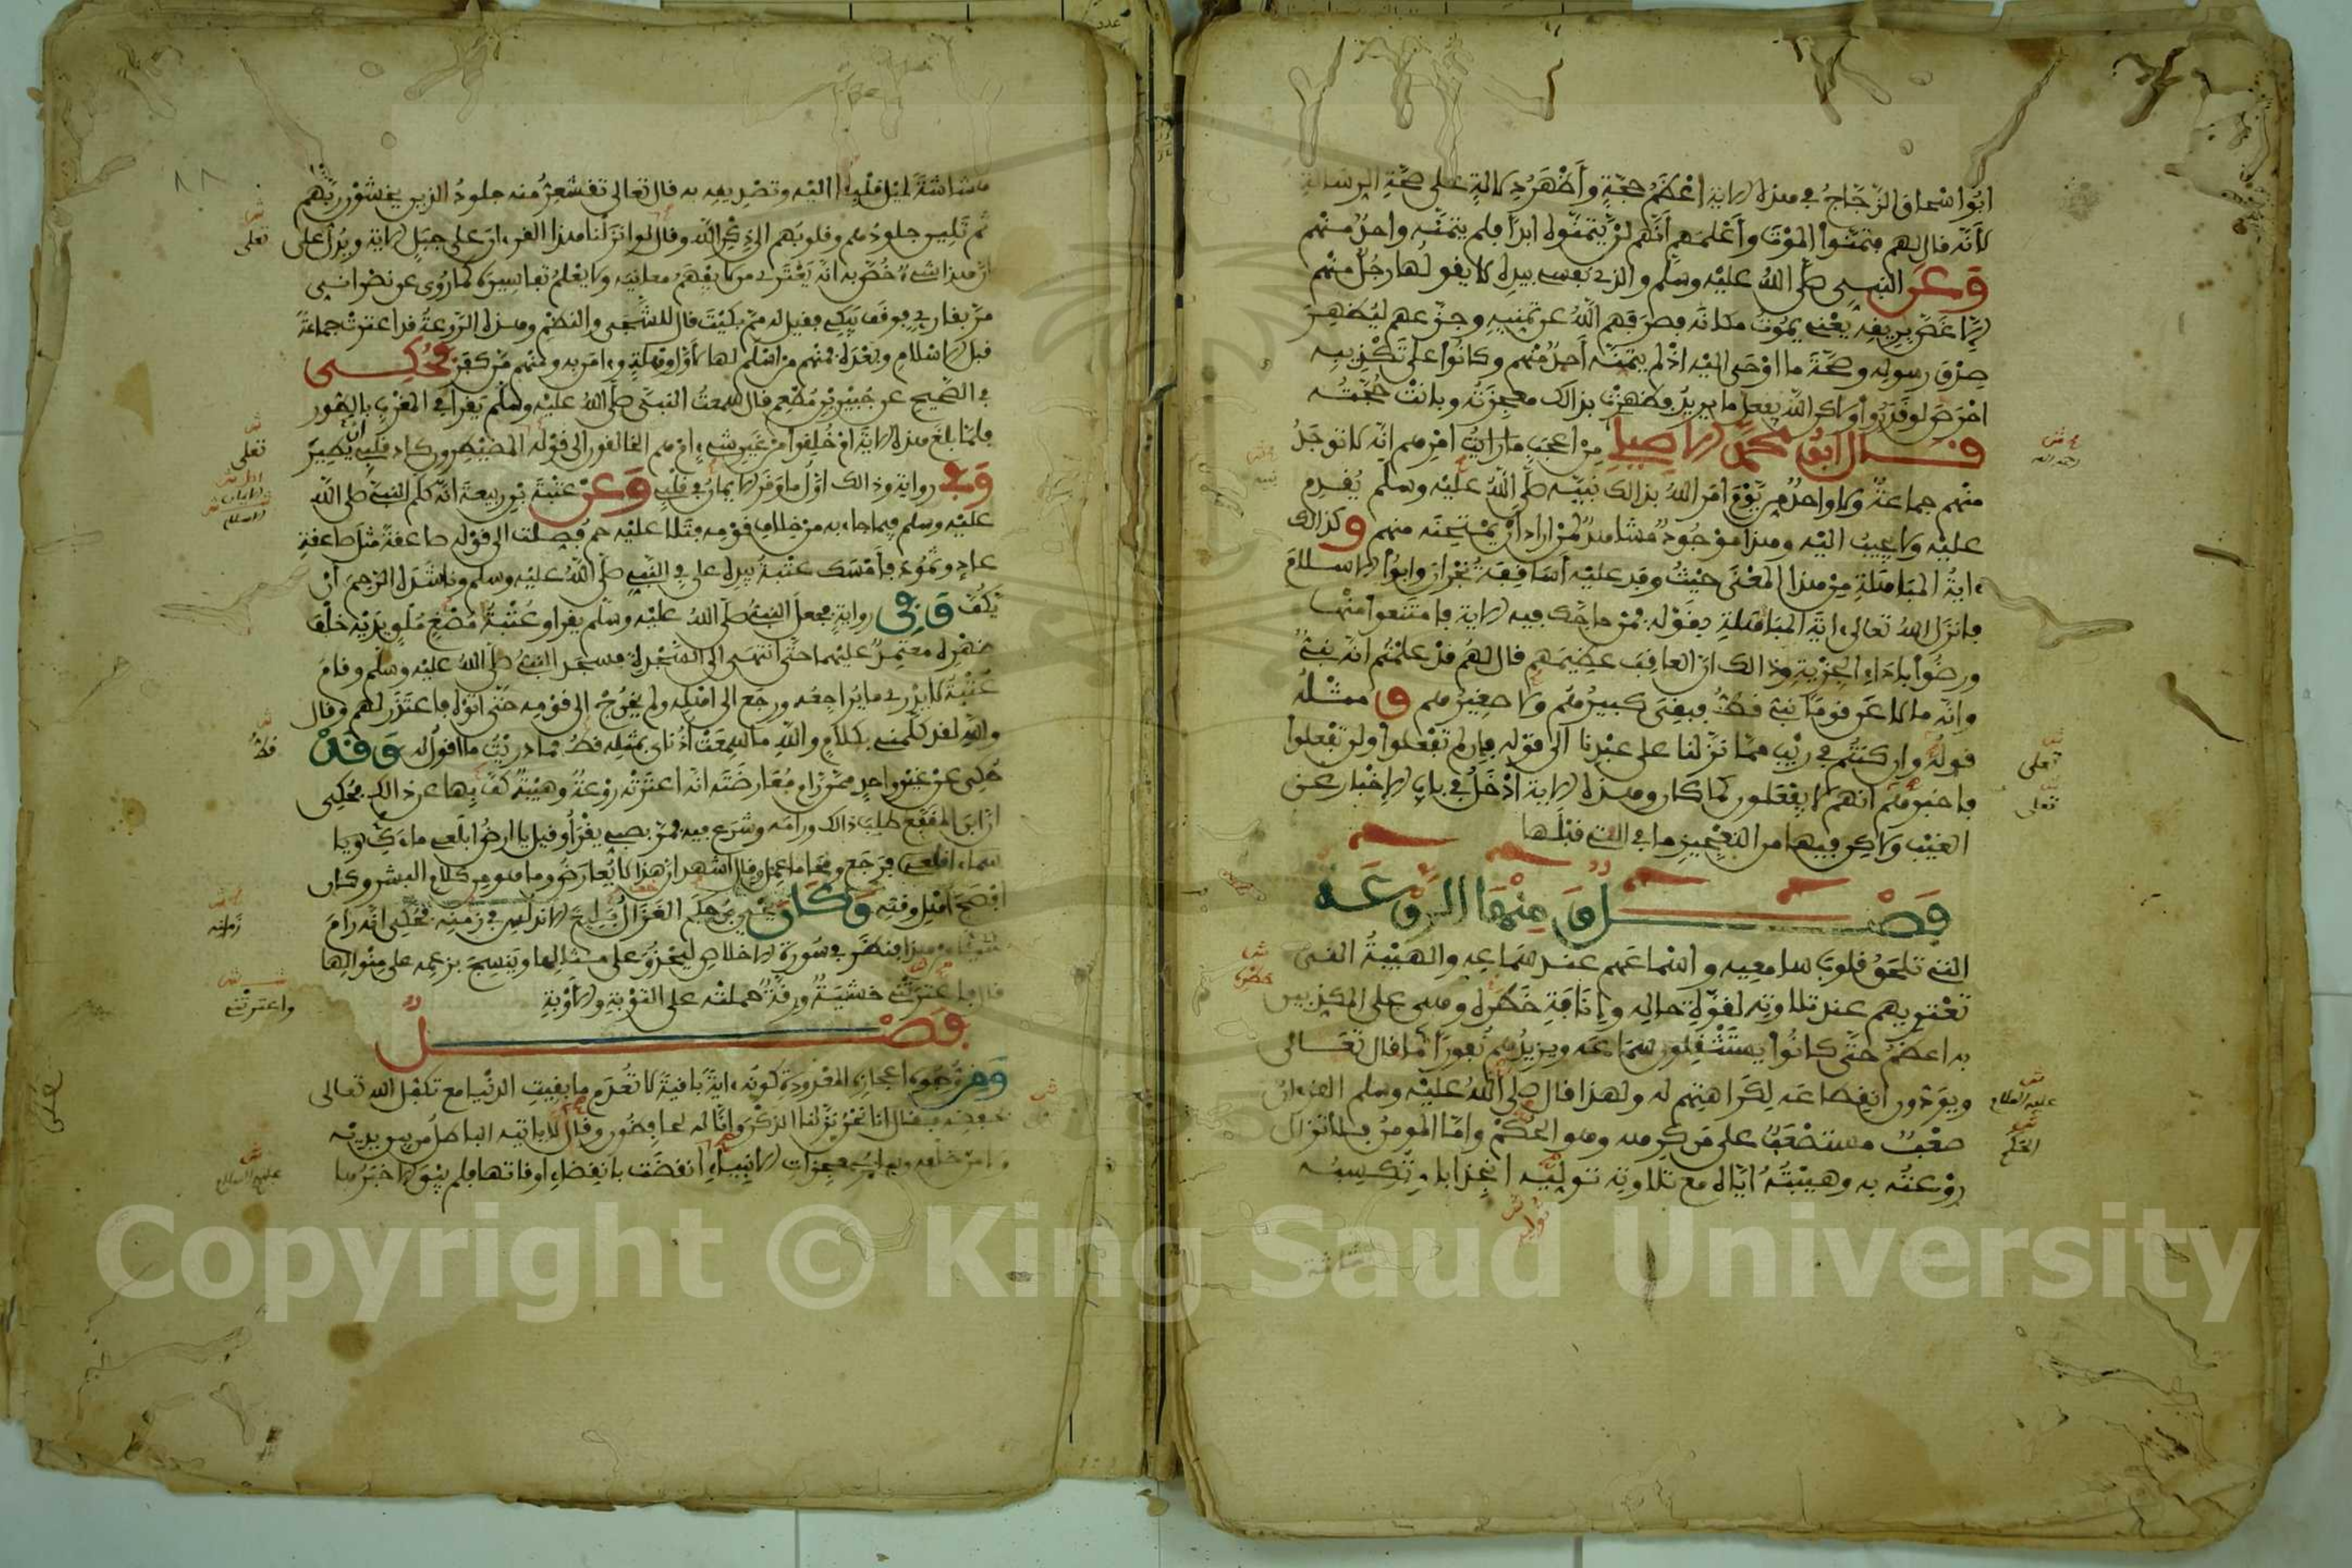 ابو اسحاق الزجاج في هذه الاية اعظم حجة وأظهر دلالة على صحة الرسالة
لأنه قال لهم فتمنوا الموت وأعلمهم أنهم لن يتمنوه ابدا فلم يتمنه واحد منهم
وعن النبي صلى الله عليه وسلم والذي نفسي بيده لا يقولها رجل منهم
الا غص بريقه يعني يموت مكانه فصرفهم الله عن تمنيه وجزعهم ليظهر
صدق رسوله وصحة ما اوحي اليه اذ لم يتمنه أحد منهم وكانوا على تكذيبه
احرص لو قدروا ولاكن الله يفعل ما يريد فظهرت بذالك معجزته وبانت حجته
قال ابو محمد الاصيلي من اعجب ما رايت امرهم انه لا توجد
منهم جماعة ولا واحد من يوم امر الله بذالك نبيه صلى الله عليه وسلم يقدم
عليه ولا يجيب اليه وهذا موجود مشاهد لمن اراد أن يمتحنه منهم وكذالك
ءاية المباهلة من هذا المعنى حيث وفد عليه أساقفة نجران وابوا الاسلام
فانزل الله تعالى ءاية المباهلة بقوله فمن حاجك فيه الاية فامتنعوا منها
ورضوا باداء الجزية وذالك ان العاقب عظيمهم قال لهم قد علمتم انه نبي
وانه ما لاعن قوما نبي قط فبقي كبيرهم ولا صغيرهم ومثله
قوله وان كنتم في ريب مما نزلنا على عبدنا الى قوله فان لم تفعلوا ولن تفعلوا
فاخبرهم انهم لا يفعلون كما كان وهذه الاية أدخل في باب الاخبار عن
الغيب ولاكن فيها من التعجيز ما في التي قبلها
فصل ومنها الروعة
التي تلحق قلوب سامعيه واسماعهم عند سماعه والهيبة التي
تعتريهم عند تلاوته لقوة حاله وإنافة خطره وهي على المكذبين
به اعظم حتى كانوا يستثقلون سماعه ويزيدهم نفورا كما قال تعالى
ويودون انقطاعه لكراهتهم له ولهذا قال صلى الله عليه وسلم القرءان
صعب مستصعب على من كرهه وهو الحكم واما المومن فلا تزال
روعته به وهيبته اياه مع تلاوته توليه انجذابا وتكسبه
تعلى
تعلى
عليه السلام
الحكم
هشاشة لميل قلبه اليه وتصديقه به قال تعالى تقشعر منه جلود الذين يخشون ربهم
ثم تلين جلودهم وقلوبهم الى ذكر الله وقال لو انزلنا هذا القرءان على جبل الاية ويدل على
ان هذا شيء خص به انه يعتري من لا يفهم معانيه ولا يعلم تفاسيره كما روي عن نصراني
مر بقارئ فوقف يبكي فقيل له مم بكيت قال للشجى والنظم وهذه الروعة قد اعترت جماعة
قبل الاسلام وبعده فمنهم من اسلم لها لأول وهلة وءامن به ومنهم من كفر فحكي
في الصحيح عن جبير بن مطعم قال سمعت النبي صلى الله عليه وسلم يقرأ في المغرب بالطور
فلما بلغ هذه الاية ام خلقوا من غير شيء ام هم الخالقون الى قوله المصيطرون كاد قلبي ان يطير
وفي رواية وذالك اول ما وقر الايمان في قلبي وعن عتبة بن ربيعة انه كلم النبي صلى الله
عليه وسلم فيما جاء به من خلاف قومه فتلا عليه حم فصلت الى قوله صاعقة مثل صاعقة
عاد وثمود فأمسك عتبة بيده على في النبي صلى الله عليه وسلم وناشده الرحم ان
يكف وفي رواية فجعل النبي صلى الله عليه وسلم يقرا وعتبة مصغ ملق يديه خلف
ظهره معتمد عليهما حتى انتهى الى السجدة فسجد النبي صلى الله عليه وسلم وقام
عتبة لا يدري ما يراجعه ورجع الى اهله ولم يخرج الى قومه حتى أتوه فاعتذر لهم وقال
والله لقد كلمني بكلام والله ما سمعت أذناي بمثله قط فما دريت ما اقول له وقد
حكي عن غير واحد ممن رام معارضته انه اعترته روعة وهيبة كف بها عن ذالك فحكي
ان ابن المقفع طلب ذالك ورامه وشرع فيه فمر بصبي يقرأ وقيل يا ارض ابلعي ماءك ويا
سماء اقلعي فرجع ومحا ما عمل وقال اشهد ان هذا لا يعارض وما هو من كلام البشر وكان
افصح اهل وقته وكان يحيى بن حكم الغزال بليغ الاندلس في زمنه فحكي انه رام
شيئا من هذا فنظر في سورة الاخلاص ليحذو على مثالها وينسج بزعمه على منوالها
قال فاعترتني خشية ورقة حملته على التوبة والاوبة
فصل
ومن وجوه اعجازه المعدودة كونه ءاية باقية لا تعدم ما بقيت الدنيا مع تكفل الله تعالى
بحفظه فقال انا نحن نزلنا الذكر وانا له لحافظون وقال لا ياتيه الباطل من بين يديه
ولا من خلفه وسائر معجزات الانبياء انقضت بانقضاء اوقاتها فلم يبق الا خبرها
تعلى
تعلى
قط
زمانه
واعترتني
عليهم السلام
Copyright © King Saud University